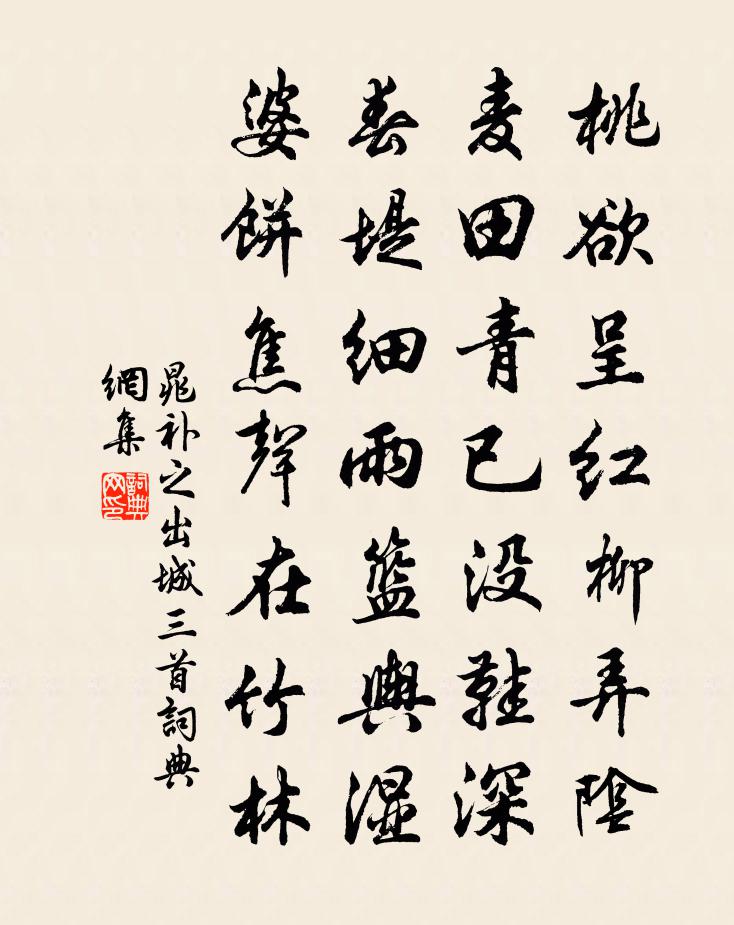 桃欲呈红柳弄陰
麦田青已没鞋深
春堤细雨篮輿濕
婆餅焦聲在竹林
晁补之出城三首詞典
網集
詞典
网印